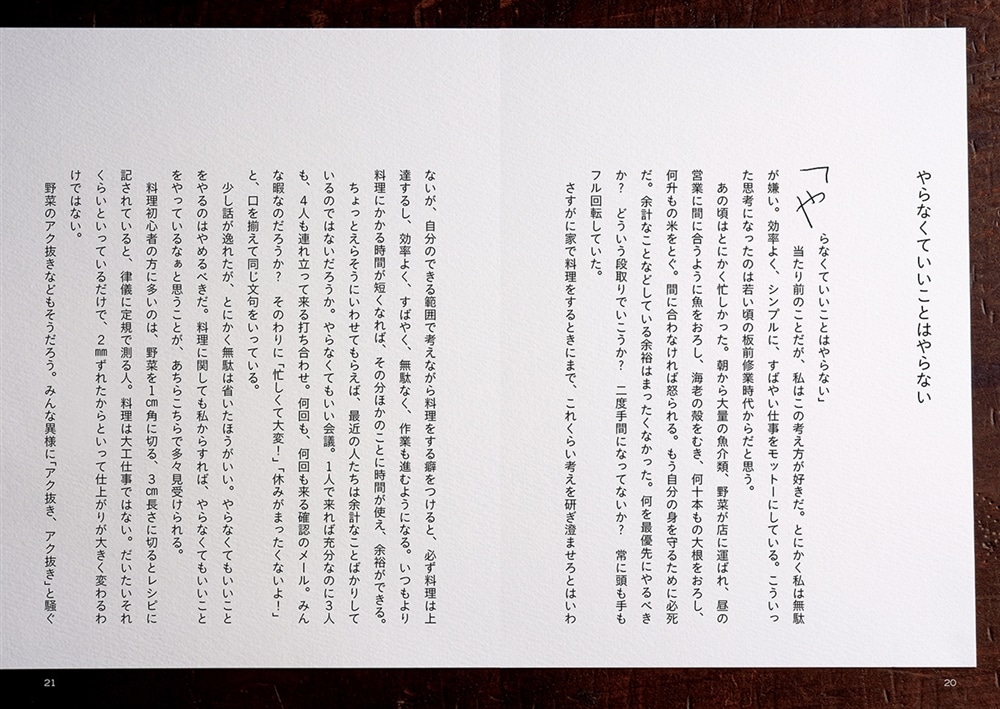 やらなくていいことはやらない
「やらなくていいことはやらない」
当たり前のことだが、私はこの考え方が好きだ。とにかく私は無駄
が嫌い。効率よく、シンプルに、すばやい仕事をモットーにしている。こういっ
た思考になったのは若い頃の板前修業時代からだと思う。
あの頃はとにかく忙しかった。朝から大量の魚介類、野菜が店に運ばれ、昼の
営業に間に合うように魚をおろし、海老の殻をむき、何十本もの大根をおろし、
何升もの米をとぐ。間に合わなければ怒られる。もう自分の身を守るために必死
だ。余計なことなどしている余裕はまったくなかった。何を最優先にやるべき
か？　どういう段取りでいこうか？　二度手間になってないか？　常に頭も手も
フル回転していた。
さすがに家で料理をするときにまで、これくらい考えを研ぎ澄ませろとはいわ
20
ないが、自分のできる範囲で考えながら料理をする癖をつけると、必ず料理は上
達するし、効率よく、すばやく、無駄なく、作業も進むようになる。いつもより
料理にかかる時間が短くなれば、その分ほかのことに時間が使え、余裕ができる。
ちょっとえらそうにいわせてもらえば、最近の人たちは余計なことばかりして
いるのではないだろうか。やらなくてもいい会議。1人で来れば充分なのに3人
も、4人も連れ立って来る打ち合わせ。何回も、何回も来る確認のメール。みん
な暇なのだろうか？　そのわりに「忙しくて大変！」「休みがまったくないよ！」
と、口を揃えて同じ文句をいっている。
少し話が逸れたが、とにかく無駄は省いたほうがいい。やらなくてもいいこと
をやるのはやめるべきだ。料理に関しても私からすれば、やらなくてもいいこと
をやっているなぁと思うことが、あちらこちらで多々見受けられる。
料理初心者の方に多いのは、野菜を1cm角に切る、3cm長さに切るとレシピに
記されていると、律儀に定規で測る人。料理は大工仕事ではない。だいたいそれ
くらいといっているだけで、2mmずれたからといって仕上がりが大きく変わるわ
けではない。
野菜のアク抜きなどもそうだろう。みんな異様に「アク抜き、アク抜き」と騒ぐ
21